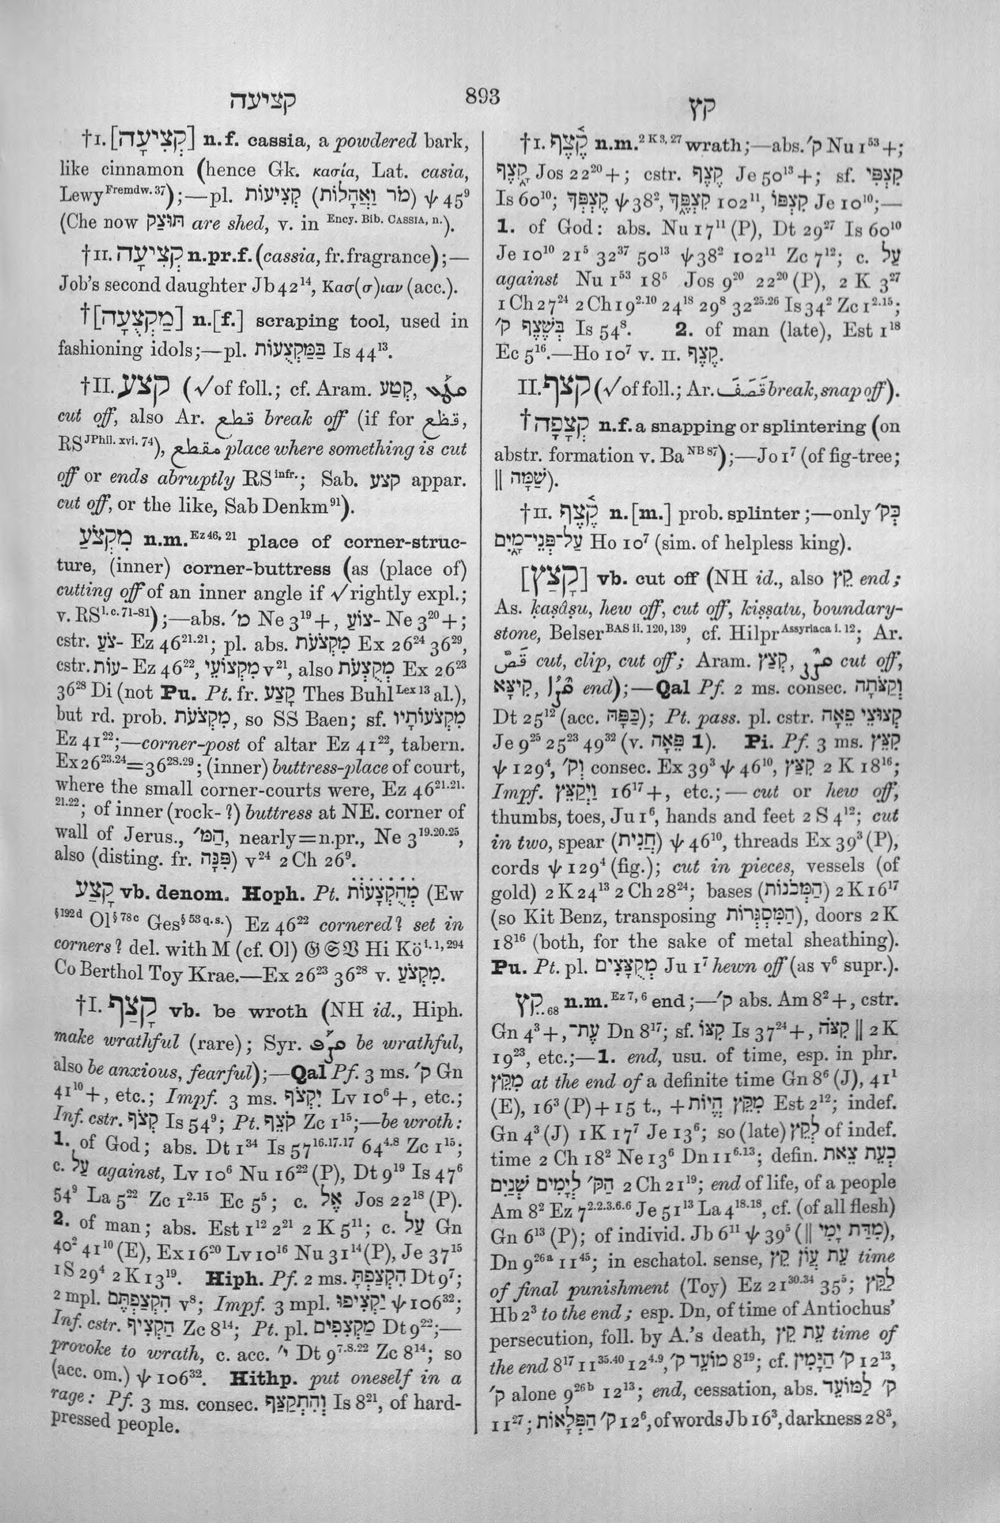 קציעה
893
קץ
†I. [קְצִיעָה] n.f. cassia, a powdered bark,
like cinnamon (hence Gk. κασία, Lat. casia,
Lewy Fremdw. 37);—pl. קְצִיעוֹת (מֹר וַאֲהָלוֹת) ψ 45⁹
(Che now תּוּצַק are shed, v. in Ency. Bib. CASSIA, n.).
†II. קְצִיעָה n.pr.f. (cassia, fr. fragrance);—
Job's second daughter Jb 42¹⁴, Κασ(σ)ιαν (acc.).
†[מַקְצֻעָה] n.[f.] scraping tool, used in
fashioning idols;—pl. בַּמַּקְצֻעוֹת Is 44¹³.
†II. קצע (√of foll.; cf. Aram. קְטַע,
cut off, also Ar. قطع break off (if for قضع,
RS JPhil. xvi. 74), مقطع place where something is cut
off or ends abruptly RS infr.; Sab. קצע appar.
cut off, or the like, Sab Denkm⁹¹).
מִקְצֹעַ n.m. Ez 46, 21 place of corner-struc-
ture, (inner) corner-buttress (as (place of)
cutting off of an inner angle if √rightly expl.;
v. RS l.c. 71-81);—abs. מ׳ Ne 3¹⁹ +, צוֹעַ- Ne 3²⁰ +;
cstr. צֹעַ- Ez 46²¹·²¹; pl. abs. מִקְצֹעֹת Ex 26²⁴ 36²⁹,
cstr. עוֹת- Ez 46²², מִקְצוֹעֵי v²¹, also מְקֻצְעֹת Ex 26²³
36²⁸ Di (not Pu. Pt. fr. קָצַע Thes Buhl Lex 13 al.),
but rd. prob. מִקְצֹעֹת, so SS Baen; sf. מִקְצֹעוֹתָיו
Ez 41²²;—corner-post of altar Ez 41²², tabern.
Ex 26²³·²⁴=36²⁸·²⁹; (inner) buttress-place of court,
where the small corner-courts were, Ez 46²¹·²¹·
²¹·²²; of inner (rock- ?) buttress at NE. corner of
wall of Jerus., הַמּ׳, nearly=n.pr., Ne 3¹⁹·²⁰·²⁵,
also (disting. fr. פִּנָּה) v²⁴ 2 Ch 26⁹.
קָצַע vb. denom. Hoph. Pt. מְהֻקְצָעוֹת (Ew
§192d Ol§78c Ges§53q.s.) Ez 46²² cornered? set in
corners? del. with M (cf. Ol) 𝔊 𝔖 𝔙 Hi Kö i. 1, 294
Co Berthol Toy Krae.—Ex 26²³ 36²⁸ v. מִקְצֹעַ.
†I. קָצַף vb. be wroth (NH id., Hiph.
make wrathful (rare); Syr. ܩܨܦ be wrathful,
also be anxious, fearful);—Qal Pf. 3 ms. ק׳ Gn
41¹⁰ +, etc.; Impf. 3 ms. יִקְצֹף Lv 10⁶ +, etc.;
Inf. cstr. קְצֹף Is 54⁹; Pt. קֹצֵף Zc 1¹⁵;—be wroth:
1. of God; abs. Dt 1³⁴ Is 57¹⁶·¹⁷·¹⁷ 64⁴·⁸ Zc 1¹⁵;
c. עַל against, Lv 10⁶ Nu 16²² (P), Dt 9¹⁹ Is 47⁶
54⁹ La 5²² Zc 1²·¹⁵ Ec 5⁵; c. אֶל Jos 22¹⁸ (P).
2. of man; abs. Est 1¹² 2²¹ 2 K 5¹¹; c. עַל Gn
40² 41¹⁰ (E), Ex 16²⁰ Lv 10¹⁶ Nu 31¹⁴ (P), Je 37¹⁵
1 S 29⁴ 2 K 13¹⁹. Hiph. Pf. 2 ms. הִקְצַפְתָּ Dt 9⁷;
2 mpl. הִקְצַפְתֶּם v⁸; Impf. 3 mpl. יַקְצִיפוּ ψ 106³²;
Inf. cstr. הַקְצִיף Zc 8¹⁴; Pt. pl. מַקְצִפִים Dt 9²²;—
provoke to wrath, c. acc. י׳ Dt 9⁷·⁸·²² Zc 8¹⁴; so
(acc. om.) ψ 106³². Hithp. put oneself in a
rage: Pf. 3 ms. consec. וְהִתְקַצַּף Is 8²¹, of hard-
pressed people.
†I. קֶצֶף n.m. 2 K 3, 27 wrath;—abs. ק׳ Nu 1⁵³ +;
קָצֶף Jos 22²⁰ +; cstr. קֶצֶף Je 50¹³ +; sf. קִצְפִּי
Is 60¹⁰; קִצְפְּךָ ψ 38², קִצְפֶּךָ 102¹¹, קִצְפּוֹ Je 10¹⁰;—
1. of God: abs. Nu 17¹¹ (P), Dt 29²⁷ Is 60¹⁰
Je 10¹⁰ 21⁵ 32³⁷ 50¹³ ψ 38² 102¹¹ Zc 7¹²; c. עַל
against Nu 1⁵³ 18⁵ Jos 9²⁰ 22²⁰ (P), 2 K 3²⁷
1 Ch 27²⁴ 2 Ch 19²·¹⁰ 24¹⁸ 29⁸ 32²⁵·²⁶ Is 34² Zc 1²·¹⁵;
בְּשֶׁצֶף ק׳ Is 54⁸. 2. of man (late), Est 1¹⁸
Ec 5¹⁶.—Ho 10⁷ v. II. קֶצֶף.
II. קצף (√of foll.; Ar. قَصَفَ break, snap off).
†קְצָפָה n.f. a snapping or splintering (on
abstr. formation v. Ba NB 87);—Jo 1⁷ (of fig-tree;
‖ שַׁמָּה).
†II. קֶצֶף n.[m.] prob. splinter;—only כְּק׳
עַל־פְּנֵי־מָיִם Ho 10⁷ (sim. of helpless king).
[קָצַץ] vb. cut off (NH id., also קֵץ end;
As. ḳaṣâṣu, hew off, cut off, ḳiṣṣatu, boundary-
stone, Belser BAS ii. 120, 139, cf. Hilpr Assyriaca i. 12; Ar.
قَصَّ cut, clip, cut off; Aram. קְצַץ, ܩܨ cut off,
קִיצָא, ܩܨܐ end);—Qal Pf. 2 ms. consec. וְקַצֹּתָה
Dt 25¹² (acc. כַּפָּהּ); Pt. pass. pl. cstr. קְצוּצֵי פֵאָה
Je 9²⁵ 25²³ 49³² (v. פֵּאָה 1). Pi. Pf. 3 ms. קִצֵּץ
ψ 129⁴, וְק׳ consec. Ex 39³ ψ 46¹⁰, קִצַּץ 2 K 18¹⁶;
Impf. וַיְקַצֵּץ 16¹⁷ +, etc.;—cut or hew off,
thumbs, toes, Ju 1⁶, hands and feet 2 S 4¹²; cut
in two, spear (חֲנִית) ψ 46¹⁰, threads Ex 39³ (P),
cords ψ 129⁴ (fig.); cut in pieces, vessels (of
gold) 2 K 24¹³ 2 Ch 28²⁴; bases (הַמְּכֹנוֹת) 2 K 16¹⁷
(so Kit Benz, transposing הַמִּסְגְּרוֹת), doors 2 K
18¹⁶ (both, for the sake of metal sheathing).
Pu. Pt. pl. מְקֻצָּצִים Ju 1⁷ hewn off (as v⁶ supr.).
קֵץ 68 n.m. Ez 7, 6 end;—ק׳ abs. Am 8² +, cstr.
Gn 4³ +, עֶת־ Dn 8¹⁷; sf. קִצּוֹ Is 37²⁴ +, קִצֹּה ‖ 2 K
19²³, etc.;—1. end, usu. of time, esp. in phr.
מִקֵּץ at the end of a definite time Gn 8⁶ (J), 41¹
(E), 16³ (P) + 15 t., + מִקֵּץ הֱיוֹת Est 2¹²; indef.
Gn 4³ (J) 1 K 17⁷ Je 13⁶; so (late) לְקֵץ of indef.
time 2 Ch 18² Ne 13⁶ Dn 11⁶·¹³; defin. כְּעֵת צֵאת
הַקּ׳ לְיָמִים שְׁנַיִם 2 Ch 21¹⁹; end of life, of a people
Am 8² Ez 7²·²·³·⁶·⁶ Je 51¹³ La 4¹⁸·¹⁸, cf. (of all flesh)
Gn 6¹³ (P); of individ. Jb 6¹¹ ψ 39⁵ (‖ מִדַּת יָמַי),
Dn 9²⁶ᵃ 11⁴⁵; in eschatol. sense, עֵת עֲוֹן קֵץ time
of final punishment (Toy) Ez 21³⁰·³⁴ 35⁵; לַקֵּץ
Hb 2³ to the end; esp. Dn, of time of Antiochus'
persecution, foll. by A.'s death, עֵת קֵץ time of
the end 8¹⁷ 11³⁵·⁴⁰ 12⁴·⁹, מוֹעֵד ק׳ 8¹⁹; cf. ק׳ הַיָּמִין 12¹³,
ק׳ alone 9²⁶ᵇ 12¹³; end, cessation, abs. ק׳ לַמּוֹעֵד
11²⁷; ק׳ הַפְּלָאוֹת 12⁶, of words Jb 16³, darkness 28³,